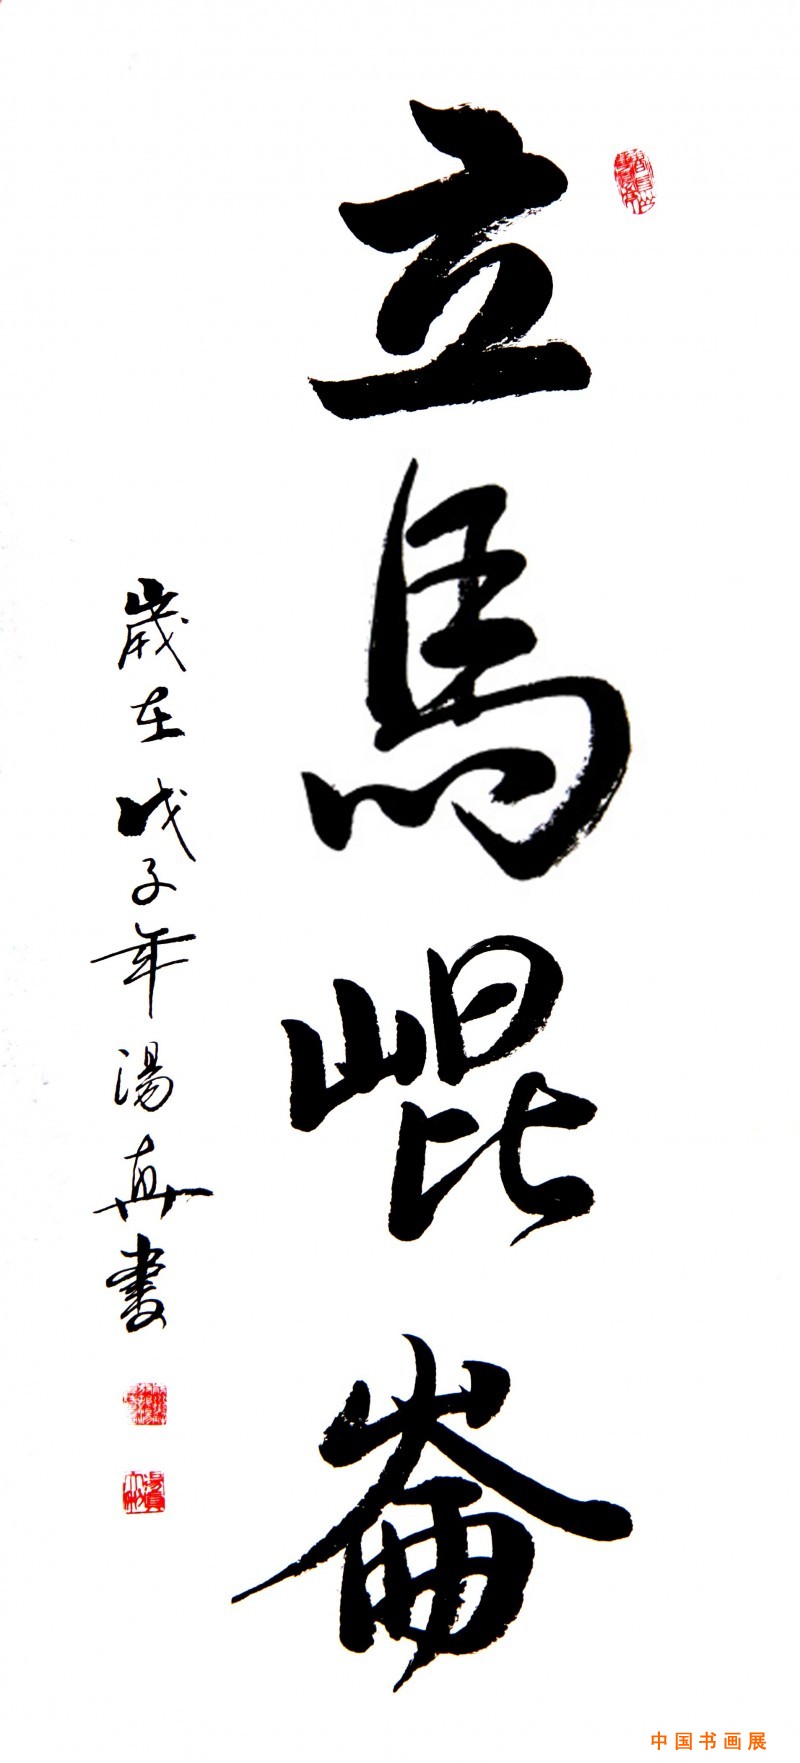 立馬崐崙
歲在戊子年湯真書
中国书画展